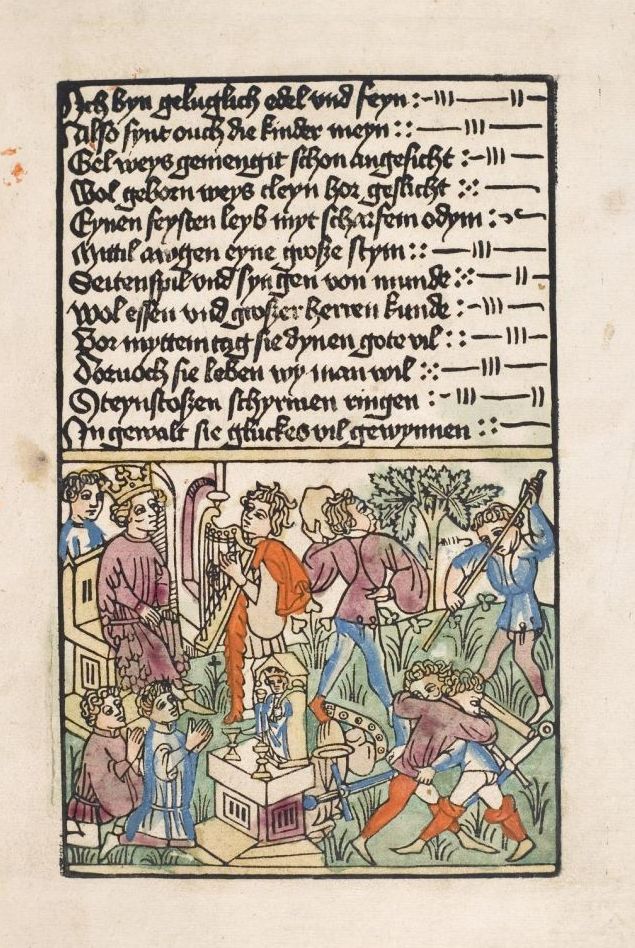 Ich byn geluglich edel vnd feyn
Also synt ouch die kinder meyn
Gel weys gemengit schon angesicht
Wol geborn weys cleyn hor geslicht
Eynen feysten leyb myt scharfem odym
Mittil awgen eyne große stym
Seitenspil vnd syngen von munde
Wol essen vnd groszer herren kunde
Vor myttem tag sie dynen gote vil
Dornoch sie leben wy man wil
Steynstoszen schyrmen ringen
In gewalt sie gluckes vil gewynnen